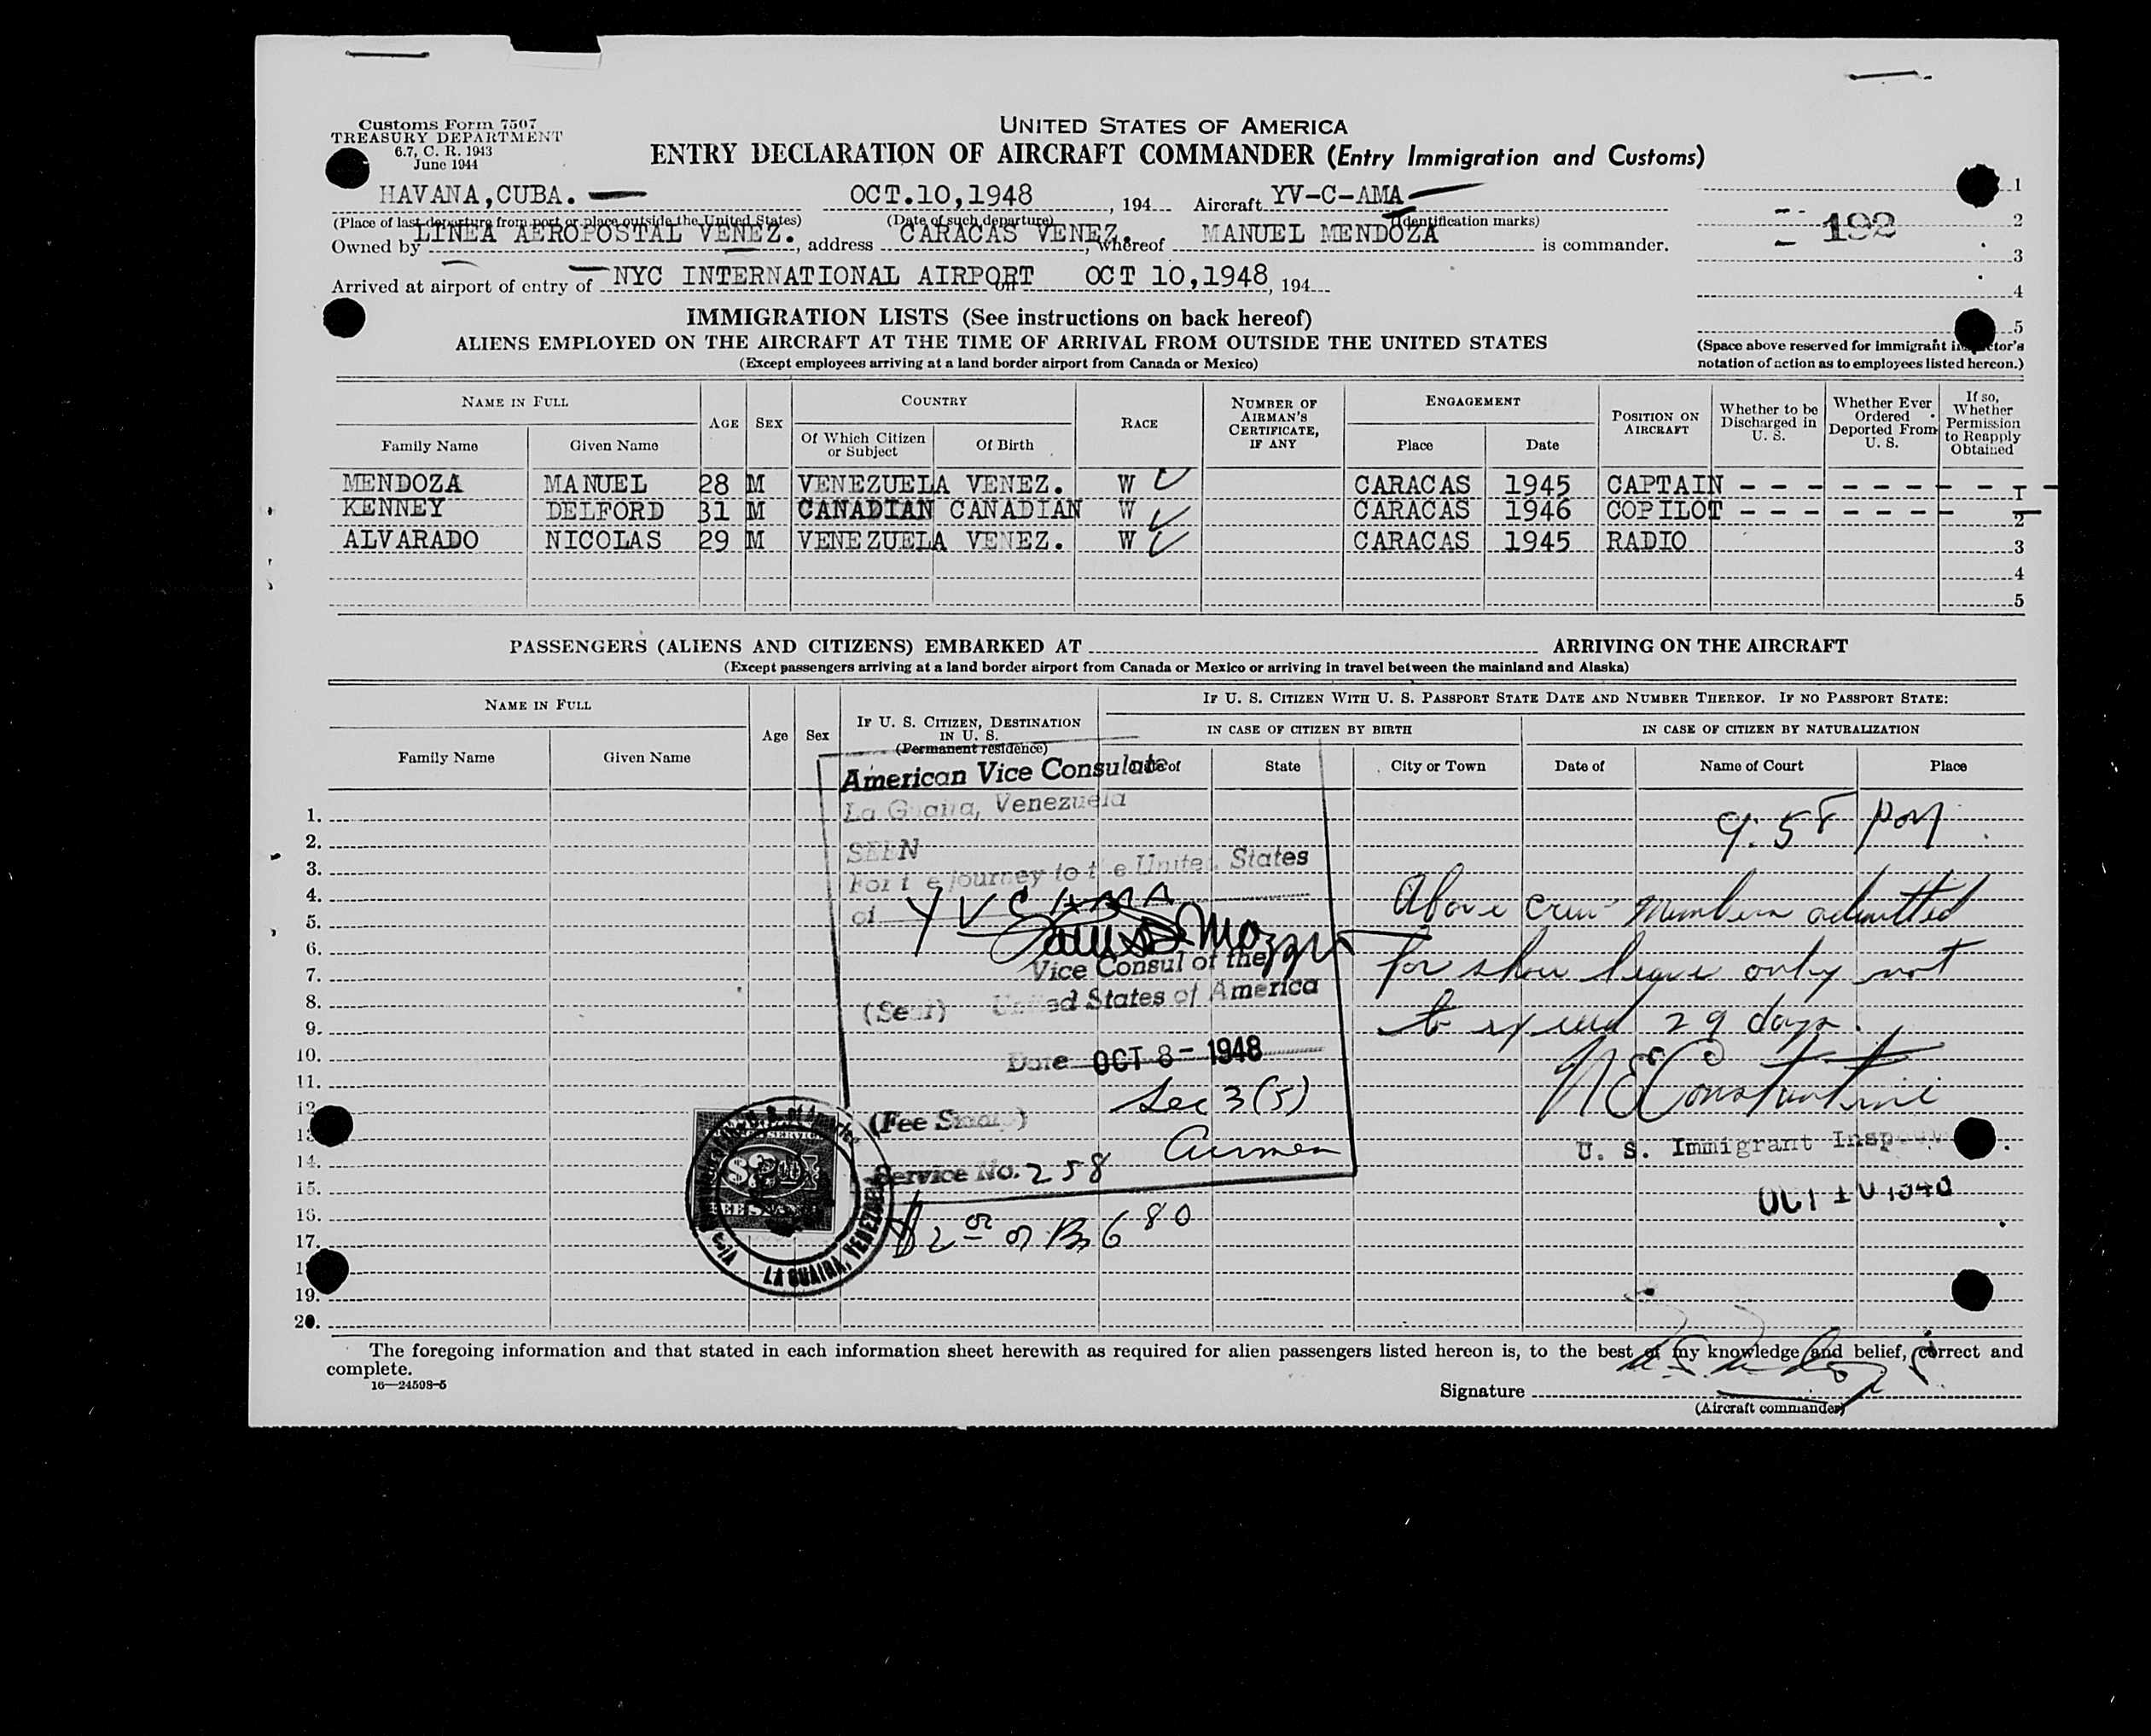 Customs Form 7507
TREASURY DEPARTMENT
6.7, C. R. 1943
June 1944
UNITED STATES OF AMERICA
ENTRY DECLARATION OF AIRCRAFT COMMANDER (Entry Immigration and Customs)
HAVANA,CUBA. OCT.10,1948, 194 Aircraft YV-C-AMA
(Place of last departure from port or place outside the United States) (Date of such departure) (Identification marks)
Owned by LINEA AEROPOSTAL VENEZ., address CARACAS VENEZ., whereof MANUEL MENDOZA is commander.
Arrived at airport of entry of NYC INTERNATIONAL AIRPORT on OCT 10,1948, 194
1
192 2
3
4
5
(Space above reserved for immigrant inspector's
notation of action as to employees listed hereon.)
IMMIGRATION LISTS (See instructions on back hereof)
ALIENS EMPLOYED ON THE AIRCRAFT AT THE TIME OF ARRIVAL FROM OUTSIDE THE UNITED STATES
(Except employees arriving at a land border airport from Canada or Mexico)
NAME IN FULL
Family Name Given Name
AGE SEX
COUNTRY
Of Which Citizen or Subject Of Birth
RACE
NUMBER OF AIRMAN'S CERTIFICATE, IF ANY
ENGAGEMENT
Place Date
POSITION ON AIRCRAFT
Whether to be Discharged in U. S.
Whether Ever Ordered Deported From U. S.
If so, Whether Permission to Reapply Obtained
MENDOZA MANUEL 28 M VENEZUELA VENEZ. W CARACAS 1945 CAPTAIN - - - - - - - - - - - 1
KENNEY DELFORD 31 M CANADIAN CANADIAN W CARACAS 1946 COPILOT - - - - - - - - 2
ALVARADO NICOLAS 29 M VENEZUELA VENEZ. W CARACAS 1945 RADIO 3
4
5
PASSENGERS (ALIENS AND CITIZENS) EMBARKED AT ARRIVING ON THE AIRCRAFT
(Except passengers arriving at a land border airport from Canada or Mexico or arriving in travel between the mainland and Alaska)
NAME IN FULL
Family Name Given Name
Age Sex
IF U. S. CITIZEN, DESTINATION IN U. S.
(Permanent residence)
IF U. S. CITIZEN WITH U. S. PASSPORT STATE DATE AND NUMBER THEREOF. IF NO PASSPORT STATE:
IN CASE OF CITIZEN BY BIRTH IN CASE OF CITIZEN BY NATURALIZATION
Date of State City or Town Date of Name of Court Place
1.
2.
3.
4.
5.
6.
7.
8.
9.
10.
11.
12
13
14.
15.
16.
17.
18
19.
20.
American Vice Consulate
La Guaira, Venezuela
SEEN
For the journey to the United States
of YVCAMA
Vice Consul of the
(Seal) United States of America
Date OCT 8 - 1948
Sec 3(5)
(Fee Stamp) Airmen
Service No. 258
$2 00 or Bs 6 80
LA GUAIRA, VENEZUELA
9:58 PM
Above crew members admitted
for shore leave only not
to exceed 29 days.
N E Constantine
U. S. Immigrant Inspector
OCT 10 1948
The foregoing information and that stated in each information sheet herewith as required for alien passengers listed hereon is, to the best of my knowledge and belief, correct and
complete.
16—24598-5
Signature
(Aircraft commander)